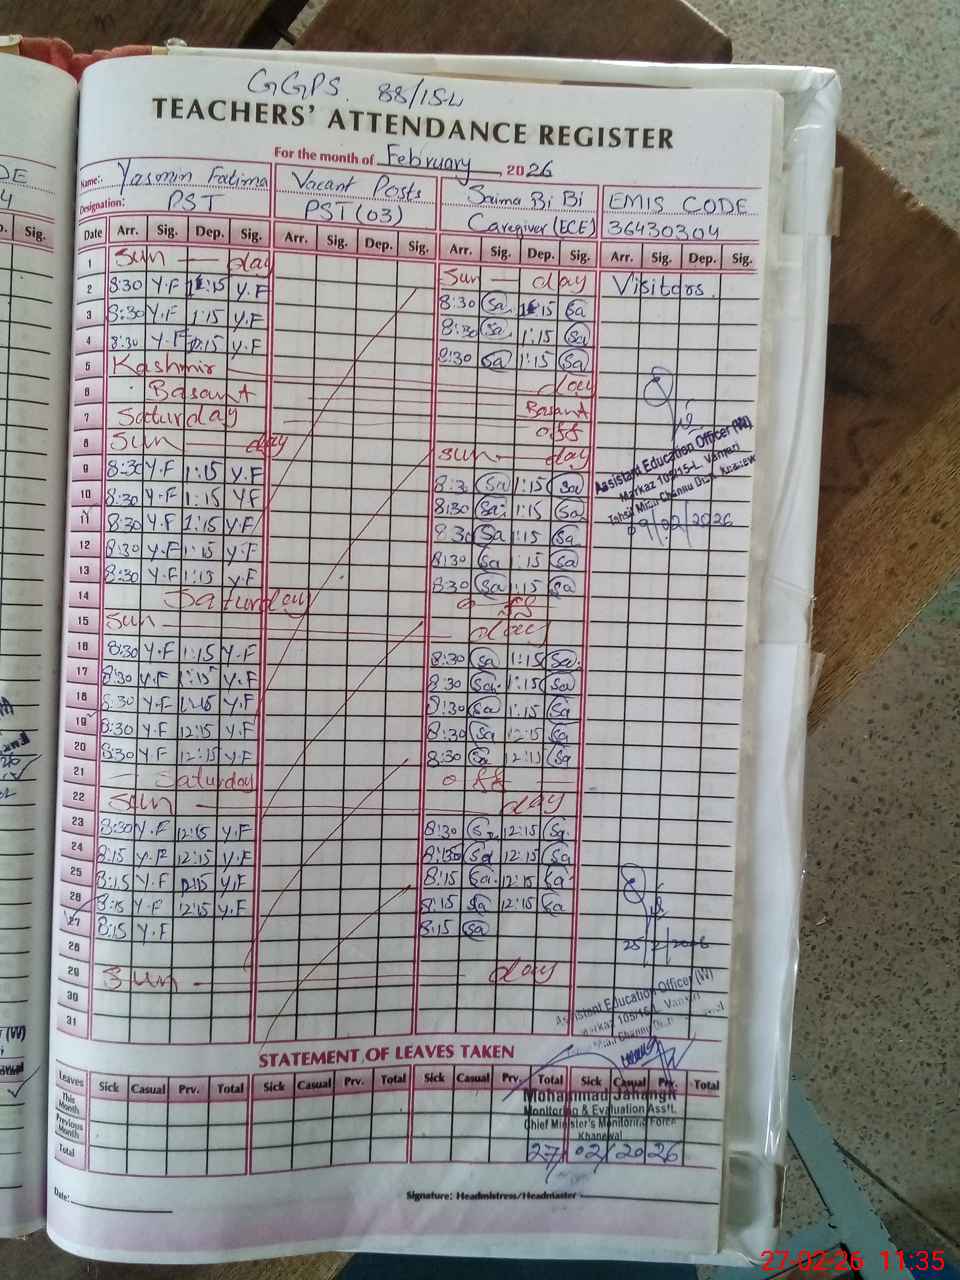 GGPS. 88/15-L
TEACHERS' ATTENDANCE REGISTER
For the month of February 2026
Name: Yasmin Fatima Vacant Posts Saima Bi Bi EMIS CODE
Designation: PST PST (03) Caregiver (ECE) 36430304
Date Arr. Sig. Dep. Sig. Arr. Sig. Dep. Sig. Arr. Sig. Dep. Sig. Arr. Sig. Dep. Sig.
1 Sun — day Sun — day Visitors
2 8:30 Y.F 1:15 Y.F 8:30 Sa 1:15 Sa
3 8:30 Y.F 1:15 Y.F 8:30 Sa 1:15 Sa
4 8:30 Y.F 1:15 Y.F 8:30 Sa 1:15 Sa
5 Kashmir day
6 Basant Basant
7 Saturday off
8 Sun — day Sun — day
9 8:30 Y.F 1:15 Y.F 8:30 Sa 1:15 Sa
10 8:30 Y.F 1:15 Y.F 8:30 Sa 1:15 Sa
11 8:30 Y.F 1:15 Y.F 8:30 Sa 1:15 Sa
12 8:30 Y.F 1:15 Y.F 8:30 Sa 1:15 Sa
13 8:30 Y.F 1:15 Y.F 8:30 Sa 1:15 Sa
14 Saturday off
15 Sun — day
16 8:30 Y.F 1:15 Y.F 8:30 Sa 1:15 Sa
17 8:30 Y.F 1:15 Y.F 8:30 Sa 1:15 Sa
18 8:30 Y.F 1:15 Y.F 8:30 Sa 1:15 Sa
19 8:30 Y.F 12:15 Y.F 8:30 Sa 12:15 Sa
20 8:30 Y.F 12:15 Y.F 8:30 Sa 12:15 Sa
21 Saturday off
22 Sun — day
23 8:30 Y.F 12:15 Y.F 8:30 Sa 12:15 Sa
24 8:15 Y.F 12:15 Y.F Sa 12:15 Sa
25 8:15 Y.F 12:15 Y.F 8:15 Sa 12:15 Sa
26 8:15 Y.F 12:15 Y.F 8:15 Sa 12:15 Sa
27 8:15 Y.F 8:15 Sa
28
29 Sun — day
30
31
Assistant Education Officer (W)
Markaz 105/15-L. Vanjari
Tehsil Mian Channu
09/02/2026
25/2/2026
Assistant Education Officer (W)
Markaz 105/15-L. Vanjari
Mian Channu
STATEMENT OF LEAVES TAKEN
Leaves Sick Casual Prv. Total Sick Casual Prv. Total Sick Casual Prv. Total Sick Casual Prv. Total
This Month
Previous Month
Total
Mohammad Jahangir
Monitoring & Evaluation Asstt.
Chief Minister's Monitoring Force
Khanewal
27/02/2026
Date:
Signature: Headmistress/Headmaster
27-02-26 11:35